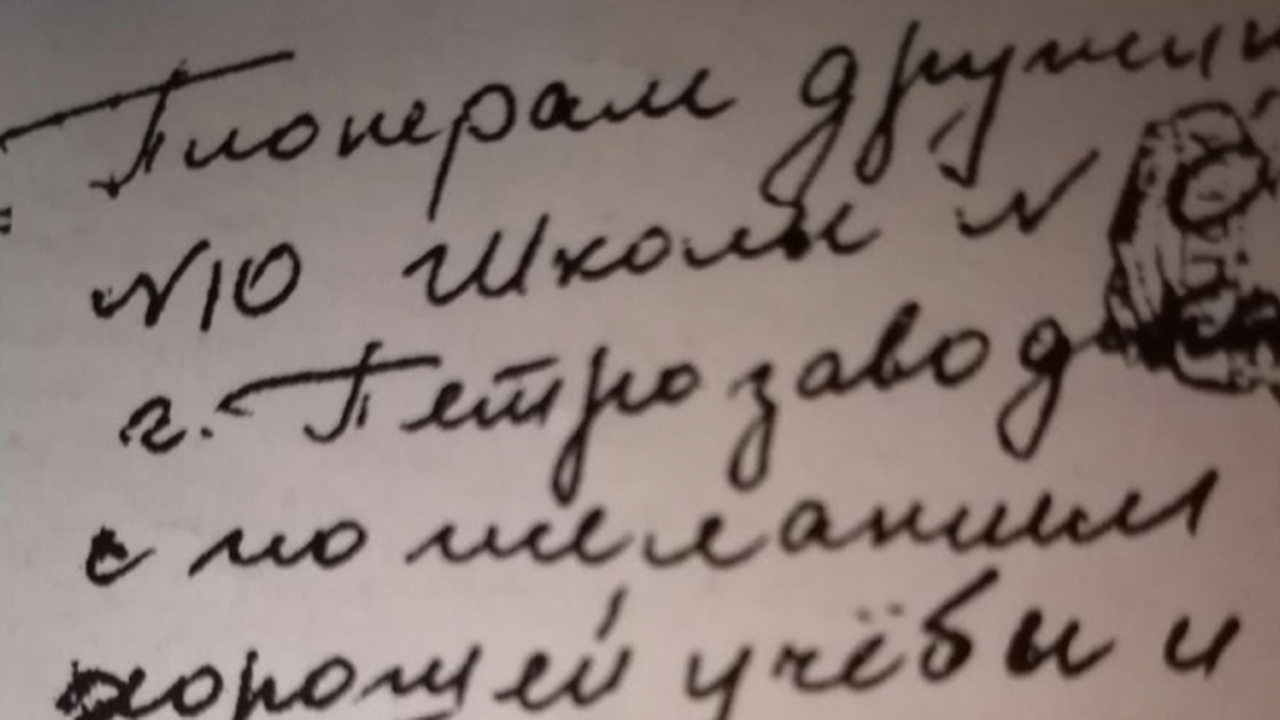 Пионерам дружин
№10 Школы №
г. Петрозавод
с пожеланием
хорошей учёбы и